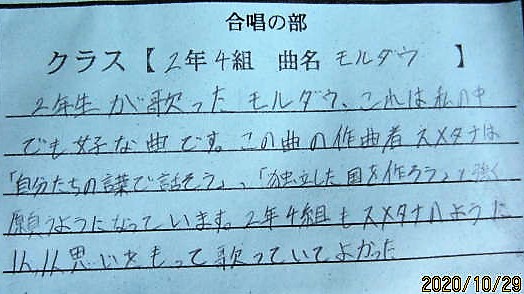 合唱の部
クラス【 2年4組 曲名 モルダウ 】
2年生が歌ったモルダウ、これは私の中
でも好な曲です。この曲の作曲者スメタナは
「自分たちの言葉で話そう」、「独立した国を作ろう」と強く
願うようになっています。2年4組もスメタナのように
1人1人思いをもって歌っていてよかった
2020/10/29